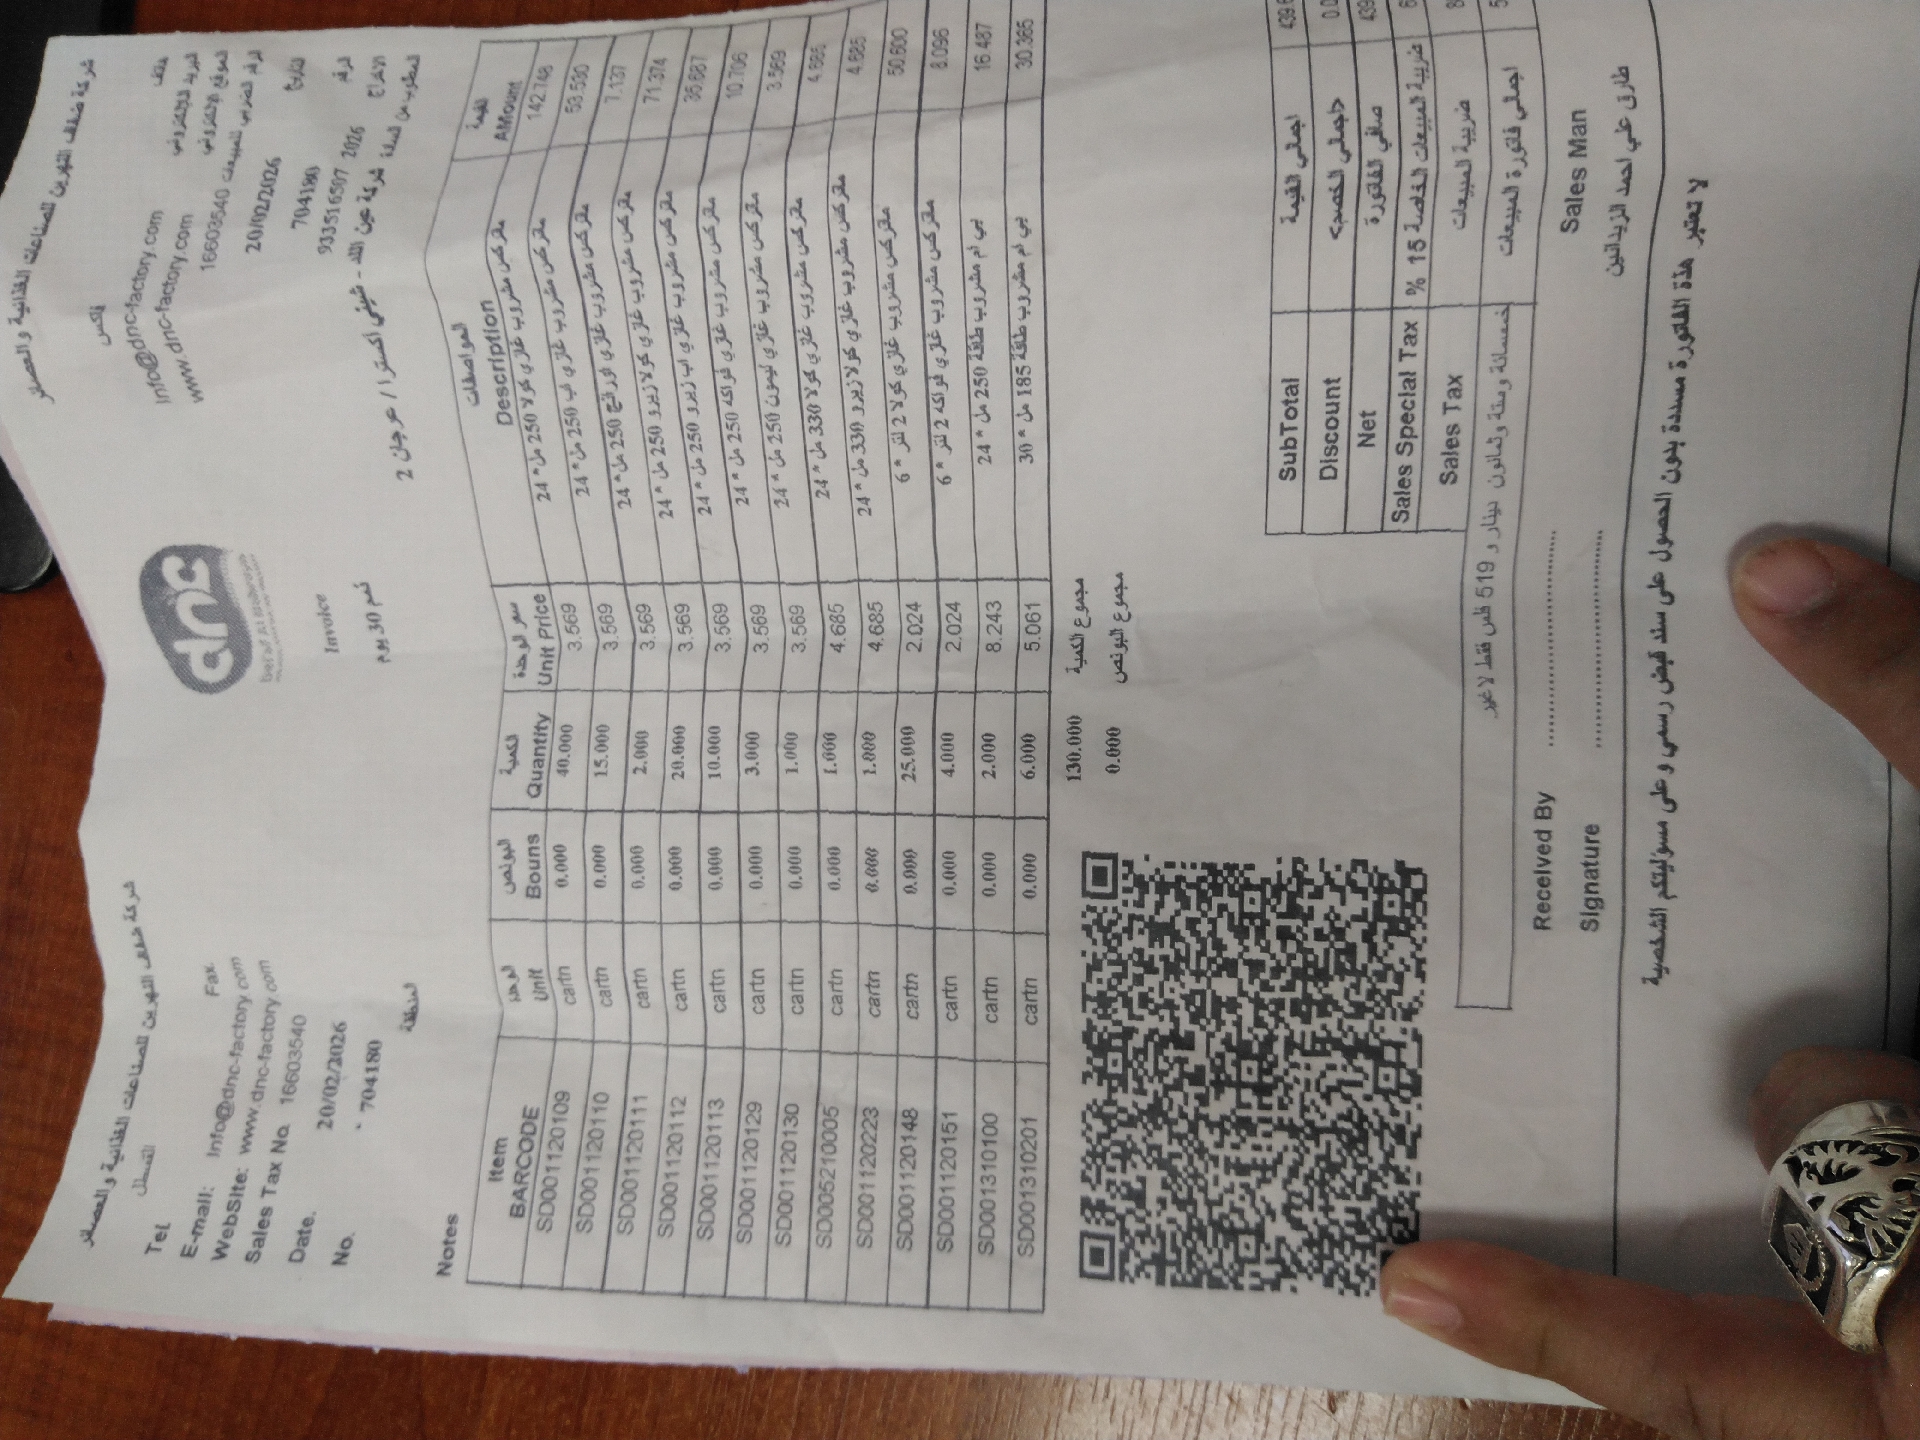 شركة ضفاف النهرين للصناعات الغذائية والعصائر
شركة ضفاف النهرين للصناعات الغذائية والعصائر
dnc
Tel
Fax
فاكس
هاتف
E-mail: Info@dnc-factory.com
Info@dnc-factory.com البريد الالكتروني
WebSite: www.dnc-factory.com
www.dnc-factory.com الموقع الالكتروني
Sales Tax No. 16603540
16603540 الرقم الضريبي للمبيعات
Date. 20/02/2026
20/02/2026 التاريخ
No. 704180
Invoice
704180 الرقم
933516507 2026
ذمم 30 يوم
المطلوب من السادة شركة عين الله - شيني اكسترا / عرجان 2
المنطقة
Notes
Item BARCODE | الوحدة Unit | البونص Bouns | الكمية Quantity | سعر الوحدة Unit Price | المواصفات Description | القيمة AMount
SD001120109 cartn 0.000 40.000 3.569 متركس مشروب غازي كولا 250 مل * 24 142.748
SD001120110 cartn 0.000 15.000 3.569 متركس مشروب غازي اب 250 مل * 24 53.530
SD001120111 cartn 0.000 2.000 3.569 متركس مشروب غازي اورانج 250 مل * 24 7.137
SD001120112 cartn 0.000 20.000 3.569 متركس مشروب غازي كولا زيرو 250 مل * 24 71.374
SD001120113 cartn 0.000 10.000 3.569 متركس مشروب غازي اب زيرو 250 مل * 24 35.687
SD001120129 cartn 0.000 3.000 3.569 متركس مشروب غازي فواكه 250 مل * 24 10.706
SD001120130 cartn 0.000 1.000 3.569 متركس مشروب غازي ليمون 250 مل * 24 3.569
SD005210005 cartn 0.000 1.000 4.685 متركس مشروب غازي كولا 330 مل * 24 4.685
SD001120223 cartn 0.000 1.000 4.685 متركس مشروب غازي كولا زيرو 330 مل * 24 4.685
SD001120148 cartn 0.000 25.000 2.024 متركس مشروب غازي كولا 2 لتر * 6 50.600
SD001120151 cartn 0.000 4.000 2.024 متركس مشروب غازي فواكه 2 لتر * 6 8.096
SD001310100 cartn 0.000 2.000 8.243 بي ام مشروب طاقة 250 مل * 24 16.487
SD001310201 cartn 0.000 6.000 5.061 بي ام مشروب طاقة 185 مل * 30 30.365
130.000 مجموع الكمية
0.000 مجموع البونص
SubTotal اجمالي القيمة 439.6
Discount <اجمالي الخصم> 0.0
Net صافي الفاتورة 439
Sales Special Tax % 15 ضريبة المبيعات الخاصة
Sales Tax ضريبة المبيعات
خمسمائة وستة وثمانون دينار و 519 فلس فقط لا غير
اجمالي فاتورة المبيعات 5
Received By
Sales Man
Signature
طارق علي احمد الزيدانين
لا تعتبر هذة الفاتورة مسددة بدون الحصول على سند قبض رسمي وعلى مسؤليتكم الشخصية